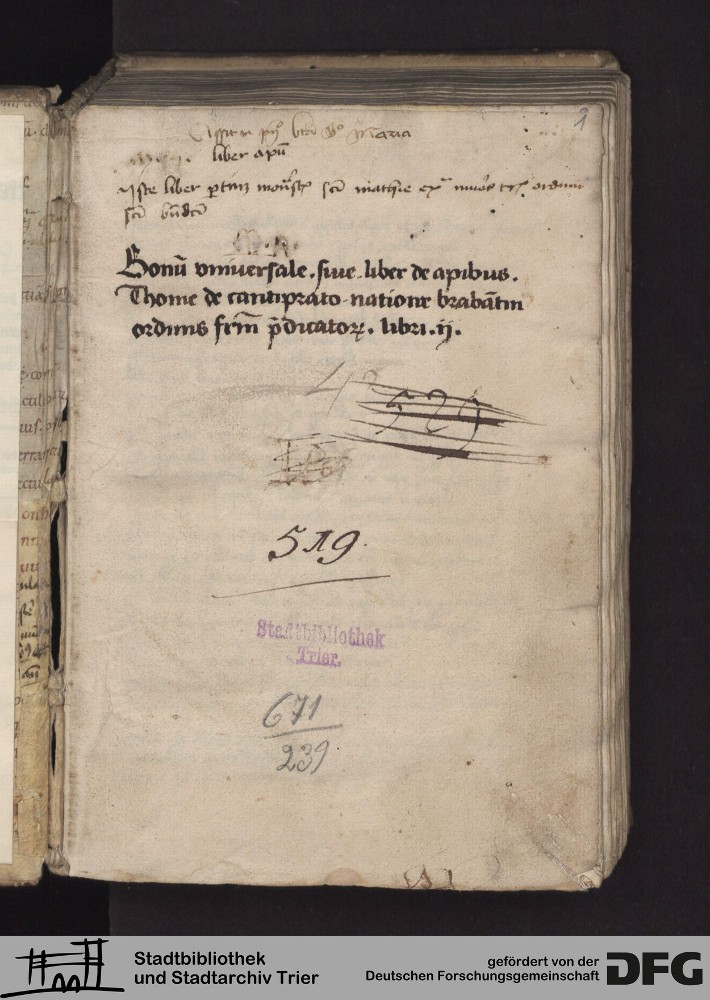 1
Maria
liber apū
Iste liber ptinz monst sci mathie ex muros ordinis
sci bndcti
Bonū vniuersale . siue . liber de apibus .
Thome de cantiprato . natione brabātini
ordinis frm̄ p̄dicatoꝝ . libri . ij .
529
519.
Stadtbibliothek
Trier.
671
239
Stadtbibliothek
und Stadtarchiv Trier
gefördert von der
Deutschen Forschungsgemeinschaft
DFG